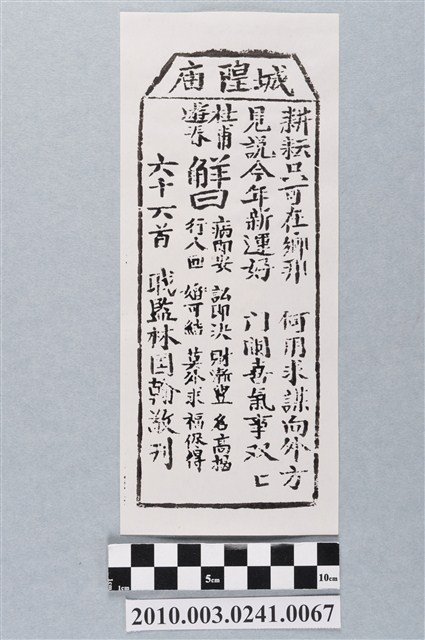 城隍庙
耕耘只可在鄉邦 何用求謀向外方
見説今年新運好 門闌喜氣事双〻
杜甫遊春
觧曰
病即安 訟即决 財漸豐 名高揭
行人回 婚可結 莫外求 福仮得
六十六首 職監林国翰敬刊
1cm 5cm 10cm
2010.003.0241.0067